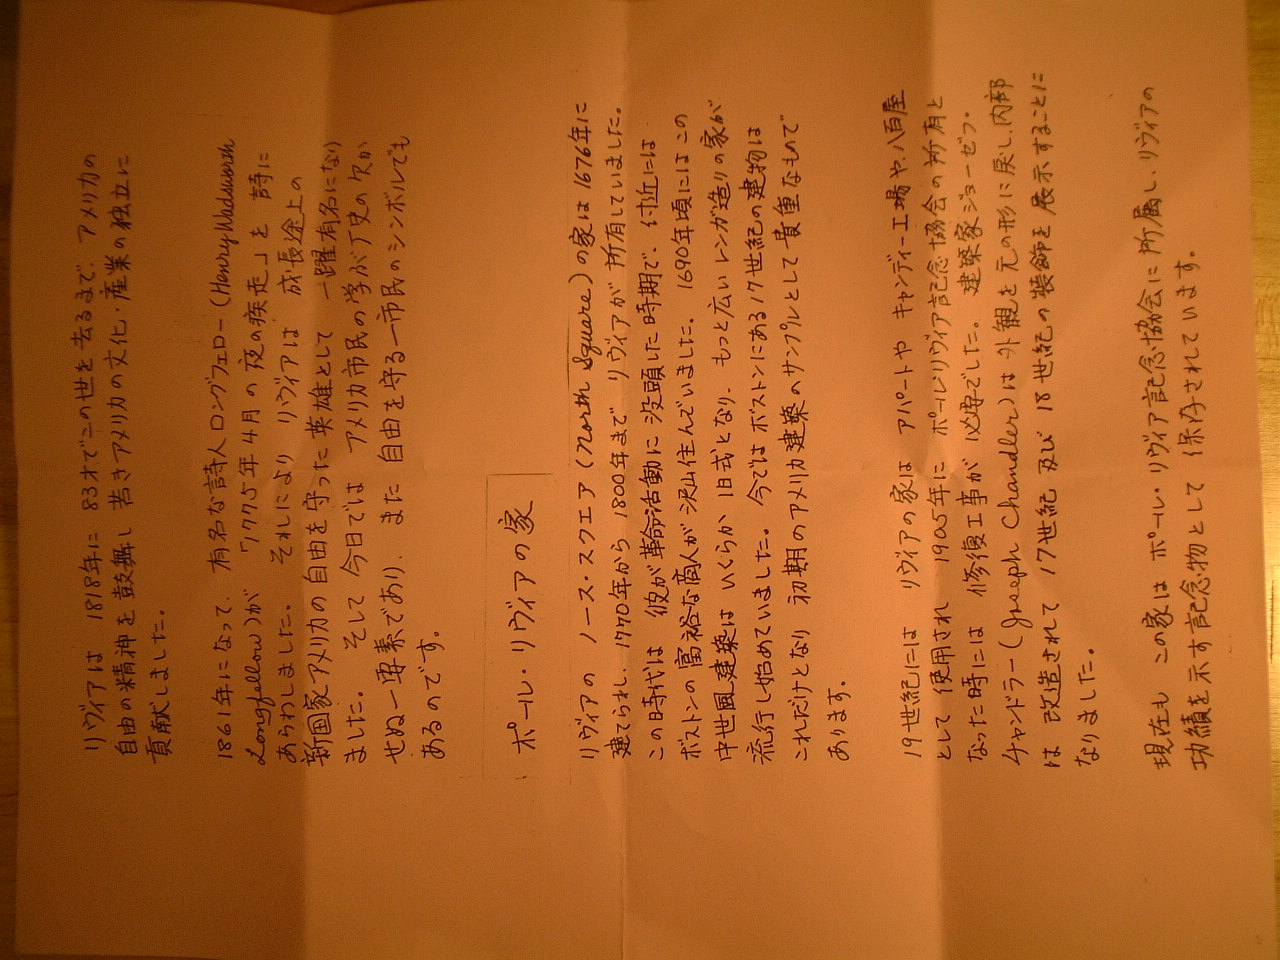 リヴィアは 1818年に 83才でこの世を去るまで、アメリカの
自由の精神を鼓舞し 若きアメリカの文化・産業の独立に
貢献しました。
1861年になって、有名な詩人ロングフェロー(Henry Wadsworth
Longfellow)が 「1775年4月の夜の疾走」を 詩に
あらわしました。 それにより リヴィアは 成長途上の
新国家アメリカの自由を守った英雄として 一躍有名になり
ました。 そして 今日では アメリカ市民の学ぶ史の欠か
せぬ一要素であり、また 自由を守る一市民のシンボルでも
あるのです。
ポール・リヴィアの家
リヴィアの ノース・スクエア (North Square)の家は 1676年に
建てられ、1770年から 1800年まで リヴィアが 所有していました。
この時代は 彼が革命活動に没頭した時期で、付近には
ボストンの富裕な商人が沢山住んでいました。 1690年頃にはこの
中世風建築は いくらか 旧式となり、もっと広いレンガ造りの家が
流行し始めていました。今ではボストンにある17世紀の建物は
これだけとなり 初期のアメリカ建築のサンプルとして貴重なもので
あります。
19世紀には リヴィアの家は アパートや キャンディー工場や、八百屋
として 使用され 1905年に ポール・リヴィア記念協会の所有と
なった時には 修復工事が 必要でした。 建築家ジョーゼフ・
チャンドラー(Joseph Chandler)は外観を元の形に戻し、内部
は 改造されて 17世紀 及び 18世紀の装飾を展示することに
なりました。
現在も この家は ポール・リヴィア記念協会に所属し、リヴィアの
功績を示す記念物として 保存されています。